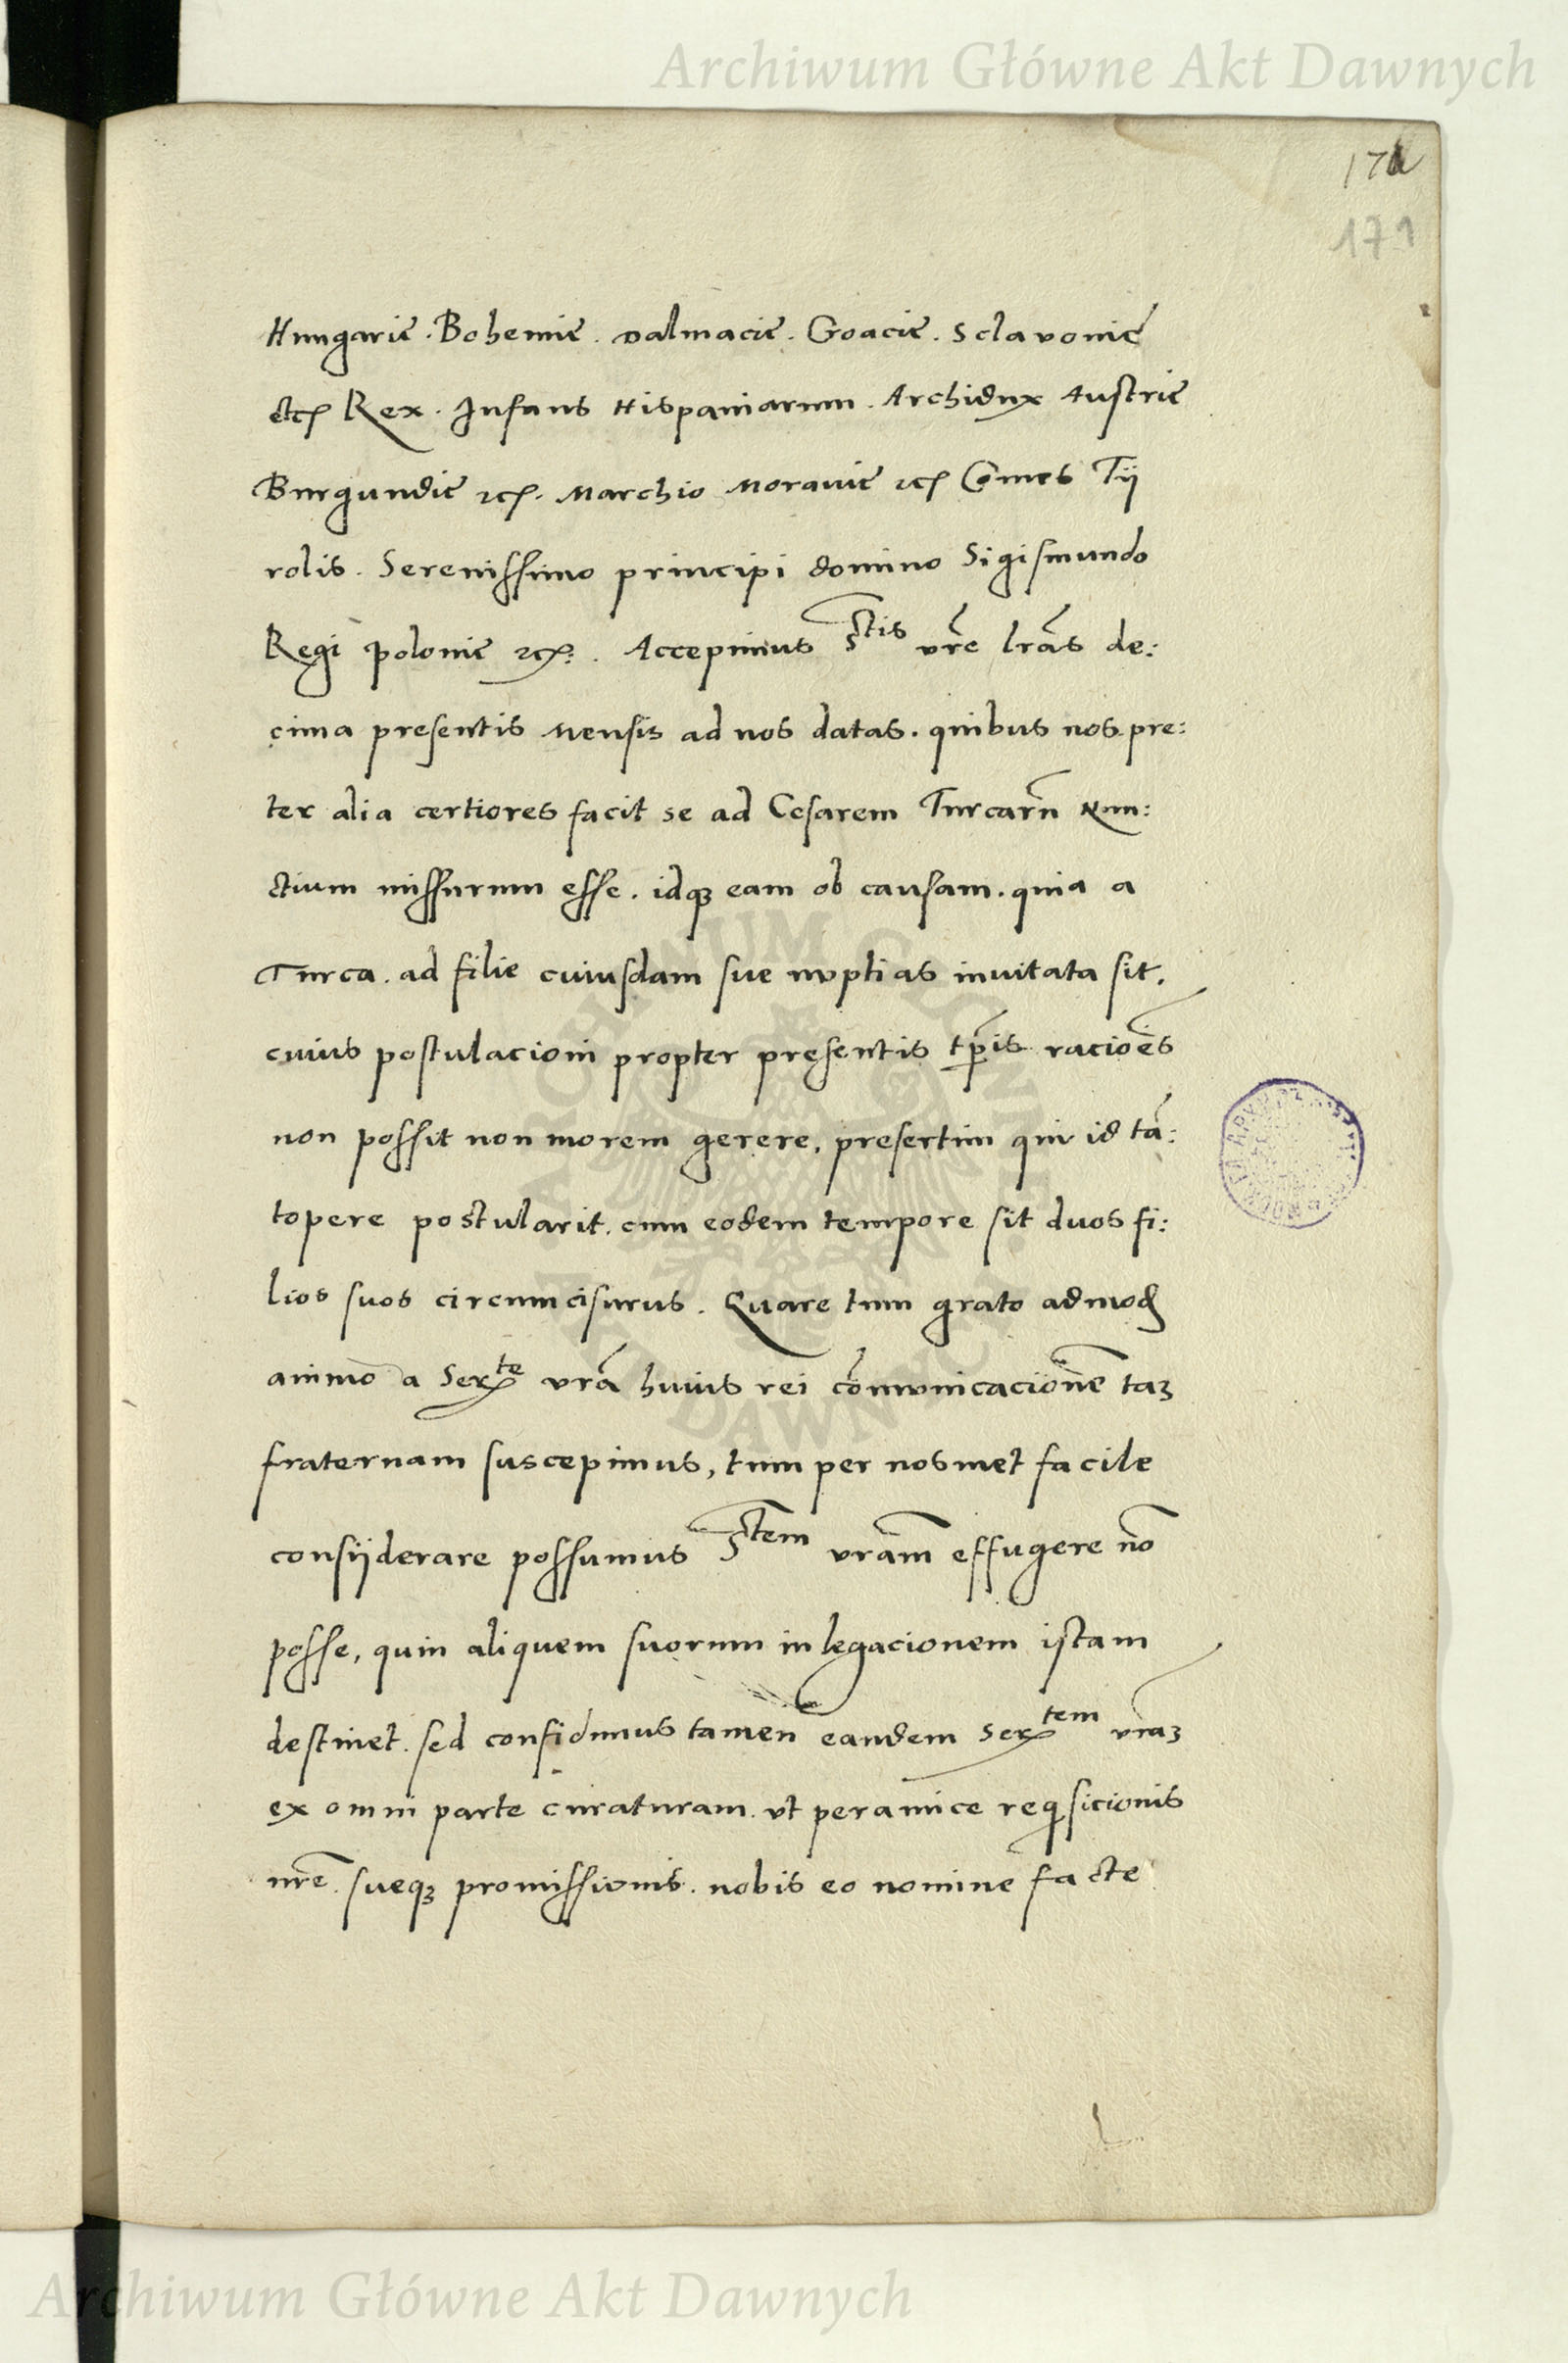 Archiwum Główne Akt Dawnych
171
Hungarie. Bohemie. Dalmacie. Croacie. Sclavonie
etc Rex. Infans Hispaniarum. Archidux Austrie
Burgundie etc. Marchio Moravie etc Comes Tij
rolis. Serenissimo principi domino Sigismundo
Regi Polonie etc. Accepimus Stis vre lras de:
cima presentis Mensis ad nos datas. quibus nos pre:
ter alia certiores facit se ad Cesarem Turcarū Nun:
ctium missurum esse. idqȝ eam ob causam. quia a
Turca. ad filie cuiusdam sue nuptias invitata sit.
cuius postulacioni propter presentis tp̄is racioēs
non possit non morem gerere, presertim qui id tā:
topere postularit. cum eodem tempore sit duos fi:
lios suos circumcisurus. Quare tum grato admod
animo a Serte vrā huius rei cōmunicacionē taȝ
fraternam suscepimus, tum per nosmet facile
consijderare possumus Stem vram̄ effugere nō
posse, quin aliquem suorum in legacionem istam
destinet. sed confidimus tamen eandem Sertem vraȝ
ex omni parte curaturam. vt peramice reqsicionis
nrē. sueqȝ promissionis. nobis eo nomine facte
Archiwum Główne Akt Dawnych